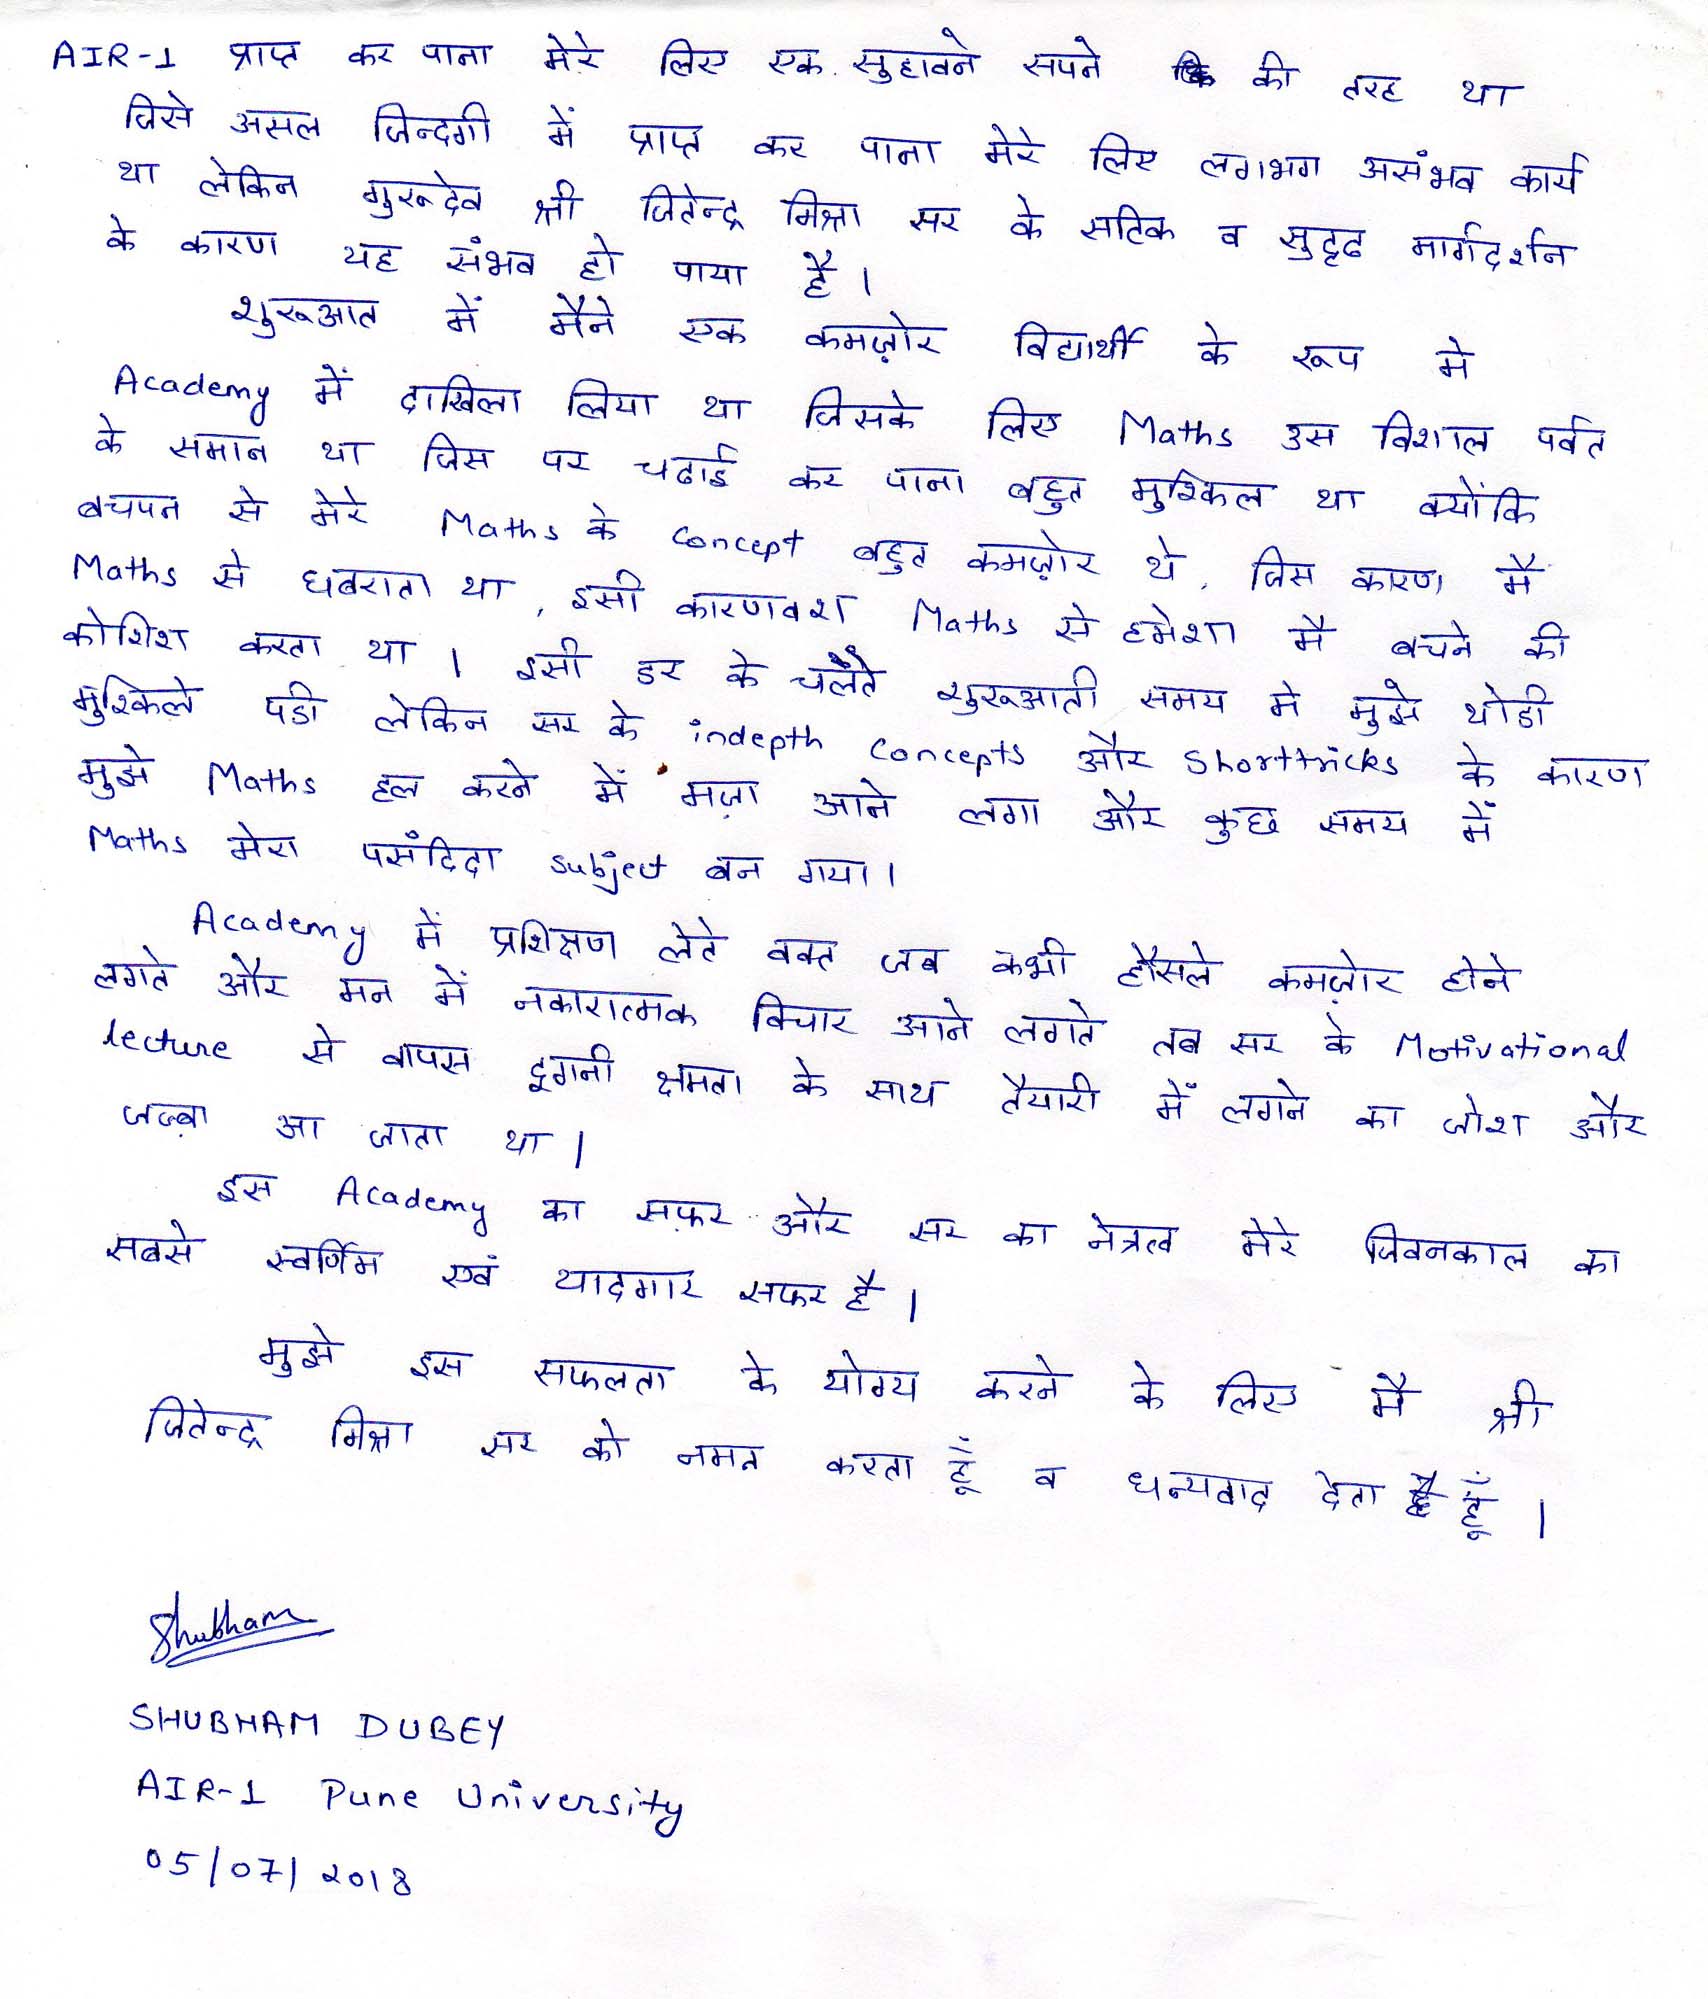 AIR-1 प्राप्त कर पाना मेरे लिए एक सुहावने सपने की तरह था
जिसे असल जिन्दगी में प्राप्त कर पाना मेरे लिए लगभग असंभव कार्य
था लेकिन गुरूदेव श्री जितेन्द्र मिश्रा सर के सटिक व सुदृढ मार्गदर्शन
के कारण यह संभव हो पाया है।
शुरूआत में मैने एक कमज़ोर विद्यार्थी के रूप मे
Academy में दाखिला लिया था जिसके लिए Maths उस विशाल पर्वत
के समान था जिस पर चढाई कर पाना बहुत मुश्किल था क्योंकि
बचपन से मेरे Maths के concept बहुत कमज़ोर थे, जिस कारण मै
Maths से घबराता था, इसी कारणवश Maths से हमेशा मै बचने की
कोशिश करता था। इसी डर के चलते शुरूआती समय मे मुझे थोडी
मुश्किले पडी लेकिन सर के indepth concepts और Shorttricks के कारण
मुझे Maths हल करने में मज़ा आने लगा और कुछ समय में
Maths मेरा पसंदिदा subject बन गया।
Academy में प्रशिक्षण लेते वक्त जब कभी हौसले कमज़ोर होने
लगते और मन में नकारात्मक विचार आने लगते तब सर के Motivational
lecture से वापस दूगनी क्षमता के साथ तैयारी में लगने का जोश और
जज्ब़ा आ जाता था।
इस Academy का सफ़र और सर का नेत्रत्व मेरे जिवनकाल का
सबसे स्वर्णिम एवं यादगार सफर है।
मुझे इस सफलता के योग्य करने के लिए मै श्री
जितेन्द्र मिश्रा सर को नमन करता हूँ व धन्यवाद देता हूँ।
Shubham
SHUBHAM DUBEY
AIR-1 Pune University
05/07/2018